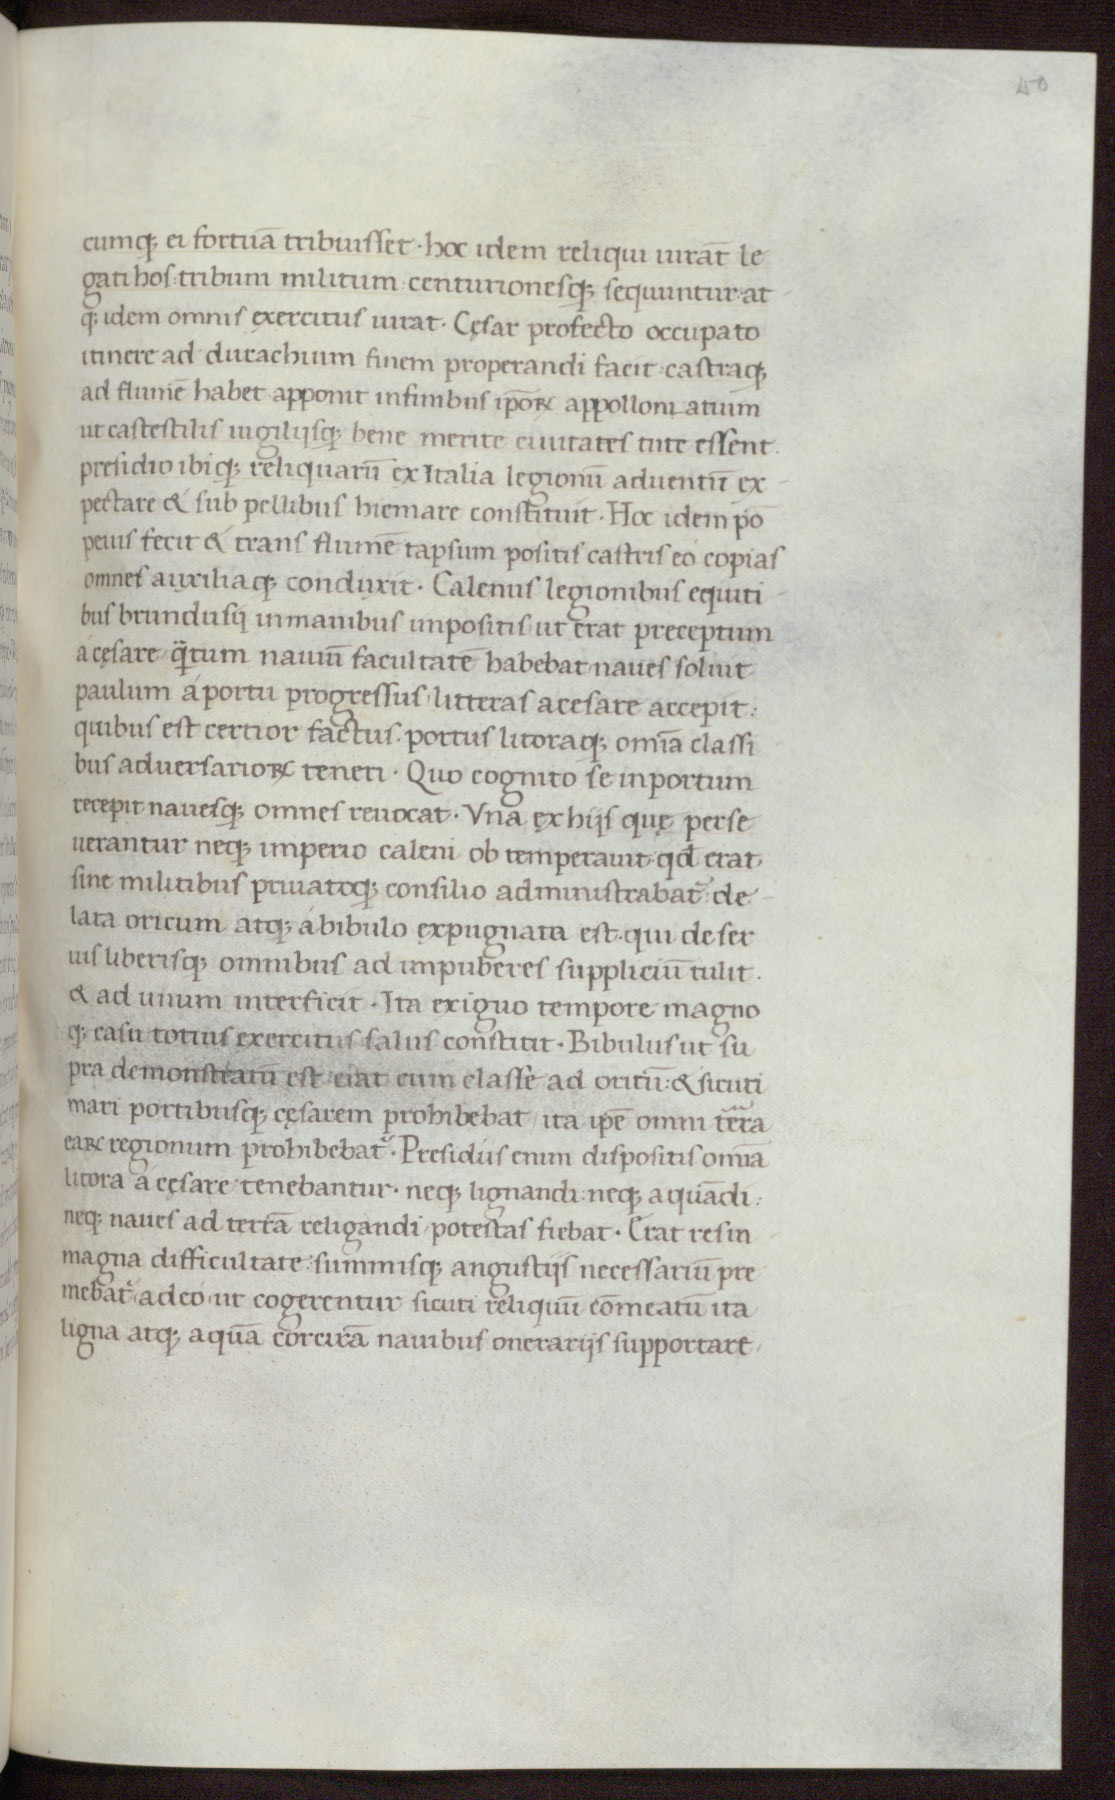 40
cumq; ei fortuā tribuisset · hoc idem reliqui iurāt le
gati hos : tribum militum : centurionesq; sequuntur · at
q; idem omnis exercitus iurat · Cęsar profecto occupato
itinere ad durachium finem properandi facit : castraq;
ad flumē habet apponit infinibus ip̄oꝝ appolloniatium
ut castestilis uigilijsq; bene merite ciuitates tute essent ·
presidio ibiq; reliquarū ex Italia legionū aduentū ex
pectare & sub pellibus hiemare constituit · Hoc idem pō
peius fecit & trans flumē tapsum positis castris eo copias
omnes auxiliaq; conduxit · Calenus legionibus equiti
bus brundusij inmanibus impositis ut erat preceptum
a cęsare q̄tum nauiū facultatē habebat naues soluit
paulum a portu progressus litteras a cesare accepit :
quibus est certior factus · portus litoraq; om̄ia classi
bus aduersarioꝝ teneri · Quo cognito se inportum
recepit nauesq; omnes reuocat · Vna ex hijs quę perse
uerantur neq; imperio caleni ob temperauit qd̄ erat
sine militibus priuatoq; consilio administrabat᷑ de
lata oricum atq; a bibulo expugnata est · qui de ser
uis liberisq; omnibus ad impuberes suppliciū tulit ·
& ad unum interficit · Ita exiguo tempore magno
q; casu totius exercitus salus constitit · Bibulus ut su
pra demonstratū est erat cum classe ad oricū : & sicuti
mari portibusq; cęsarem prohibebat ita ip̄e omni terra
eaꝝ regionum prohibebat᷑ · Presidiis enim dispositis om̄ia
litora a cęsare tenebantur · neq; lignandi : neq; aquādi :
neq; naues ad terrā religandi potestas fiebat · Erat res in
magna difficultate : summisq; angustijs necessariū pre
mebat᷑ adeo ut cogerentur sicuti reliquū cōmeatū ita
ligna atq; aquā corcirā nauibus onerarijs supportare